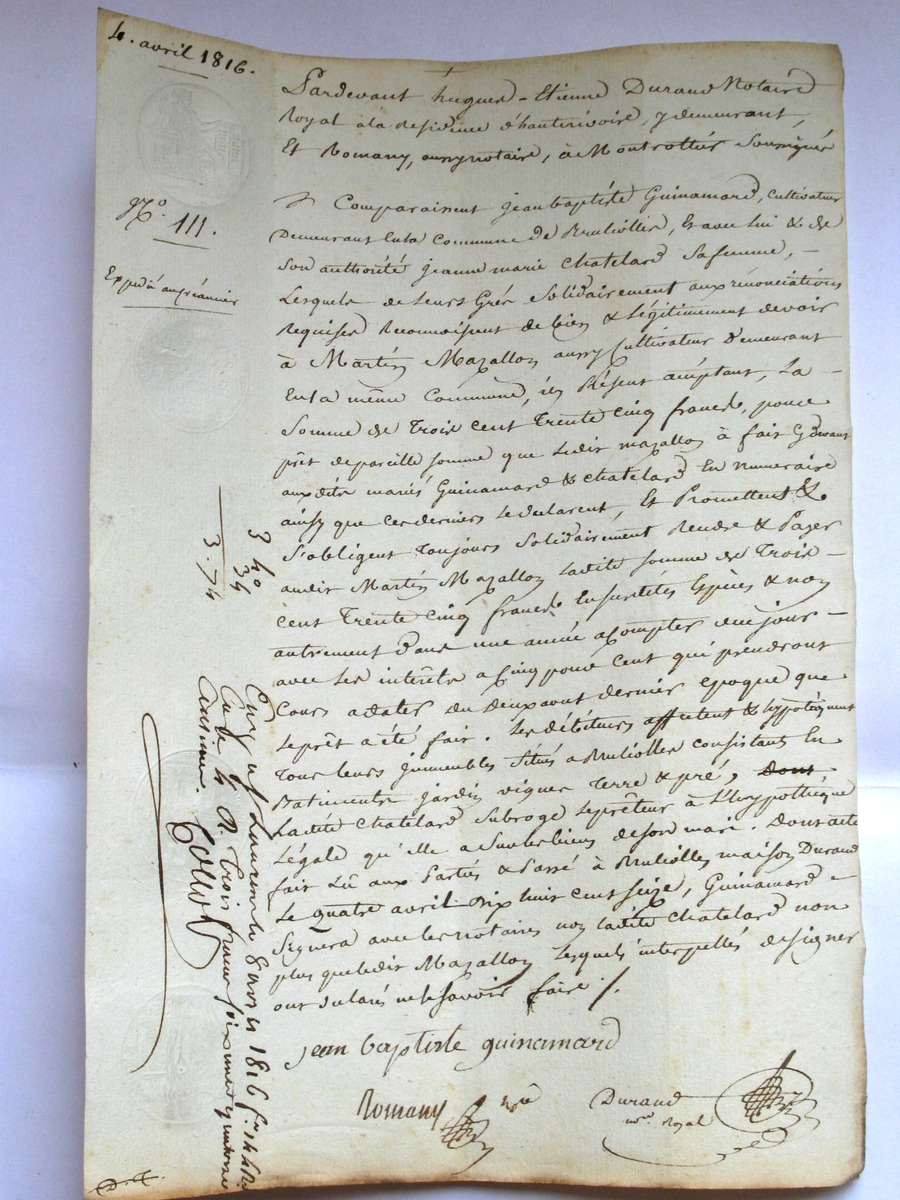 4. avril 1816.
N.o 111.
Expedié au créancier
Pardevant hugues-Etienne Durand Notaire
Royal à la residence d'hauterivoire, y demeurant,
Et Romany, aussy notaire, à Montrottier Soussignés
Comparaissent jean baptiste Guinamard, cultivateur
Demeurant en la Commune de Brulliolles, Et avec lui & de
Son authorité jeanne marie Chatelard Safemme, -
Lesquels de leurs Grés Solidairement aux rénonciations
Requises Reconnoissent de bien & Légitimement devoir
à Martin Mazallon aussy Cultivateur Demeurant
En la même Commune, ici Présent acceptant, La -
Somme de Trois cent Trente Cinq francs, pour
prêt de pareille Somme que Ledit mazallon à fait Cy devant
aux dits mariés Guinamard & chatelard En numeraire
ainsy que ces derniers le declarent, Et Promettent &
S'obligent Toujours Solidairement Rendre & Payer
audit Martin Mazallon ladite Somme de Trois -
cent Trente Cinq francs En Susdites Espèces & non
autrement dans une année acompter de ce jour -
avec les intérêts a Cinq pour Cent qui prendront
Cours a dater du deux aout dernier époque que
le prêt a été fait. Les débiteurs affectent & hypotèquent
Tous leurs jmmeubles Situés a Brulliolles consistant En
Batiments jardin vignes Terre & pré, dont
Ladite Chatelard Subroge le prêteur à L'hypothèque
Légale qu'elle a Sur les biens de Son mari. Dont acte
fait Lû aux Partiés & Passé à Brulliolles maison Durand
Le quatre avril dix huit cent Seize, Guinamard -
Signera avec les notaires non ladite Chatelard non
plus que ledit Mazallon Lesquels interpellés de Signer
ont declarés ne le Savoir faire /.
jean baptiste guinamard
Romany nre
Durand
nre Royal
3 40
34
3.74
1816